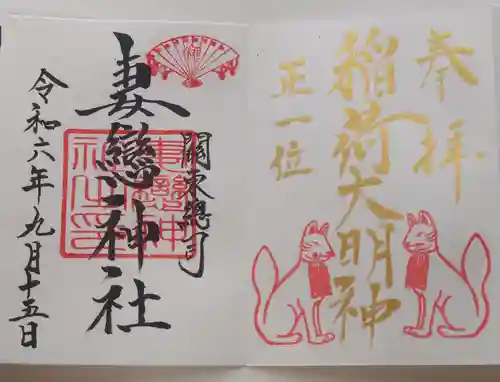 奉拝
稲荷大明神
正一位
關東總司
妻戀神社
令和六年九月十五日
妻戀神社之印